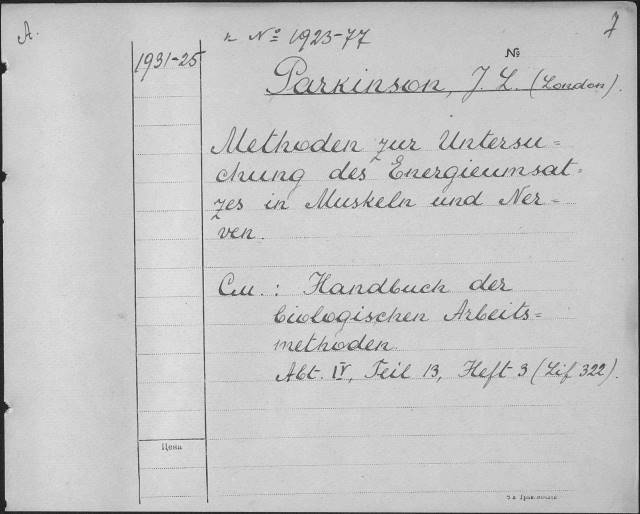 A.
7
к № 1923-77
1931-25
№
Parkinson, J. L. (London).
Methoden zur Untersu=
chung des Energieumsat=
zes in Muskeln und Ner=
ven.
См.: Handbuch der
biologischen Arbeits=
methoden.
Abt. IV, Teil 13, Heft 3 (Lif 322).
Цена